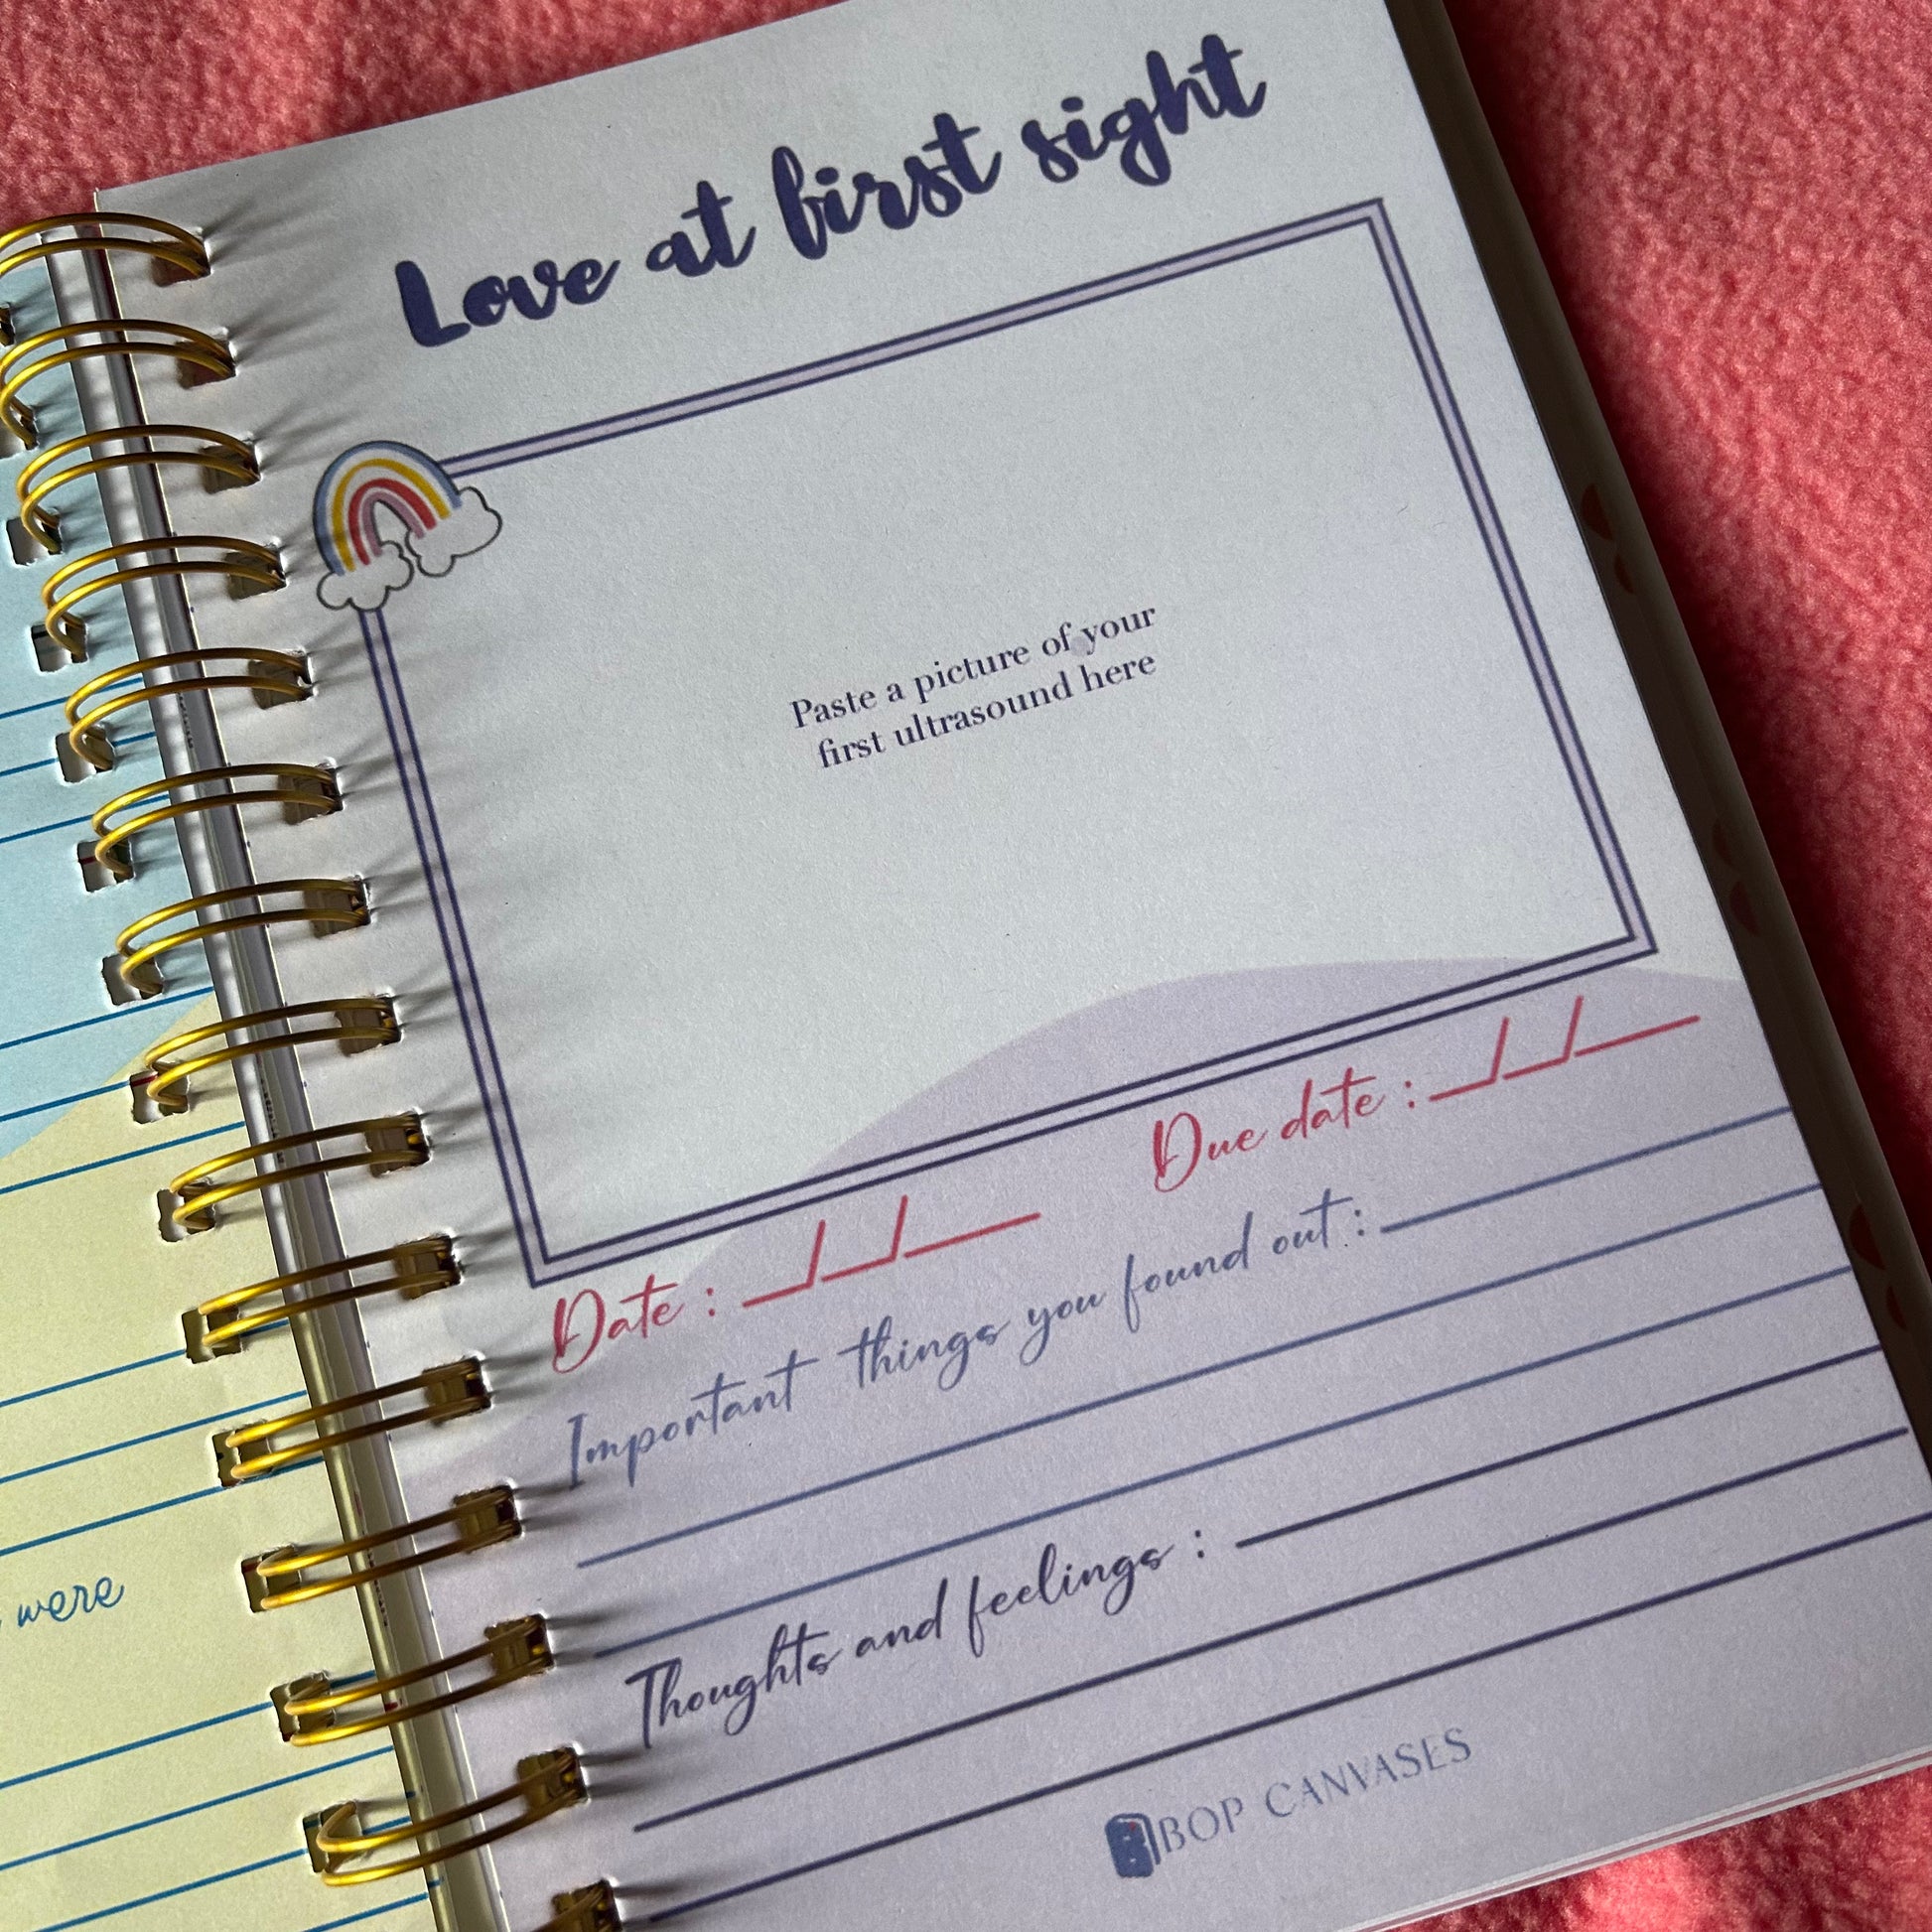 were
Love at first sight
Paste a picture of your
first ultrasound here
Date : __/__/___ Due date : __/__/___
Important things you found out :
Thoughts and feelings :
BOP CANVASES